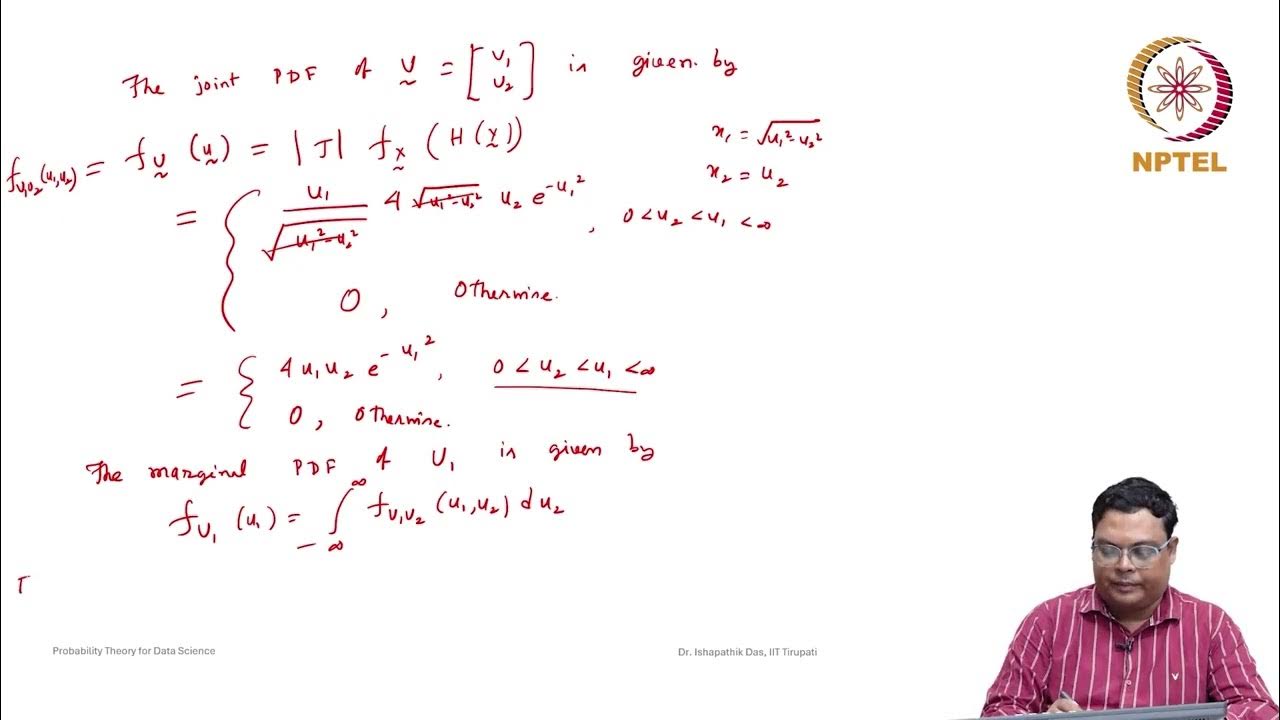 The joint PDF of U = [U₁ U₂] is given by
f_{U₁U₂}(u₁,u₂) = f_U (u) = |J| f_X (H(Y))
x₁ = √(u₁²-u₂²)
x₂ = u₂
= { u₁ / √(u₁²-u₂²) 4 √(u₁²-u₂²) u₂ e^{-u₁²} , 0 < u₂ < u₁ < ∞
0 , Otherwise.
= { 4 u₁ u₂ e^{-u₁²} , 0 < u₂ < u₁ < ∞
0 , Otherwise.
The marginal PDF of U₁ is given by
f_{U₁} (u₁) = ∫_{-∞}^{∞} f_{U₁U₂} (u₁,u₂) du₂
NPTEL
Probability Theory for Data Science
Dr. Ishapathik Das, IIT Tirupati